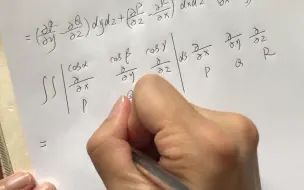 = (∂R/∂y - ∂Q/∂z) dydz + (∂P/∂z - ∂R/∂x) dxdz
∬ | cosα cosβ cosγ | ds ∂/∂x ∂/∂y ∂/∂z
∂/∂x ∂/∂y ∂/∂z P Q R
P
=